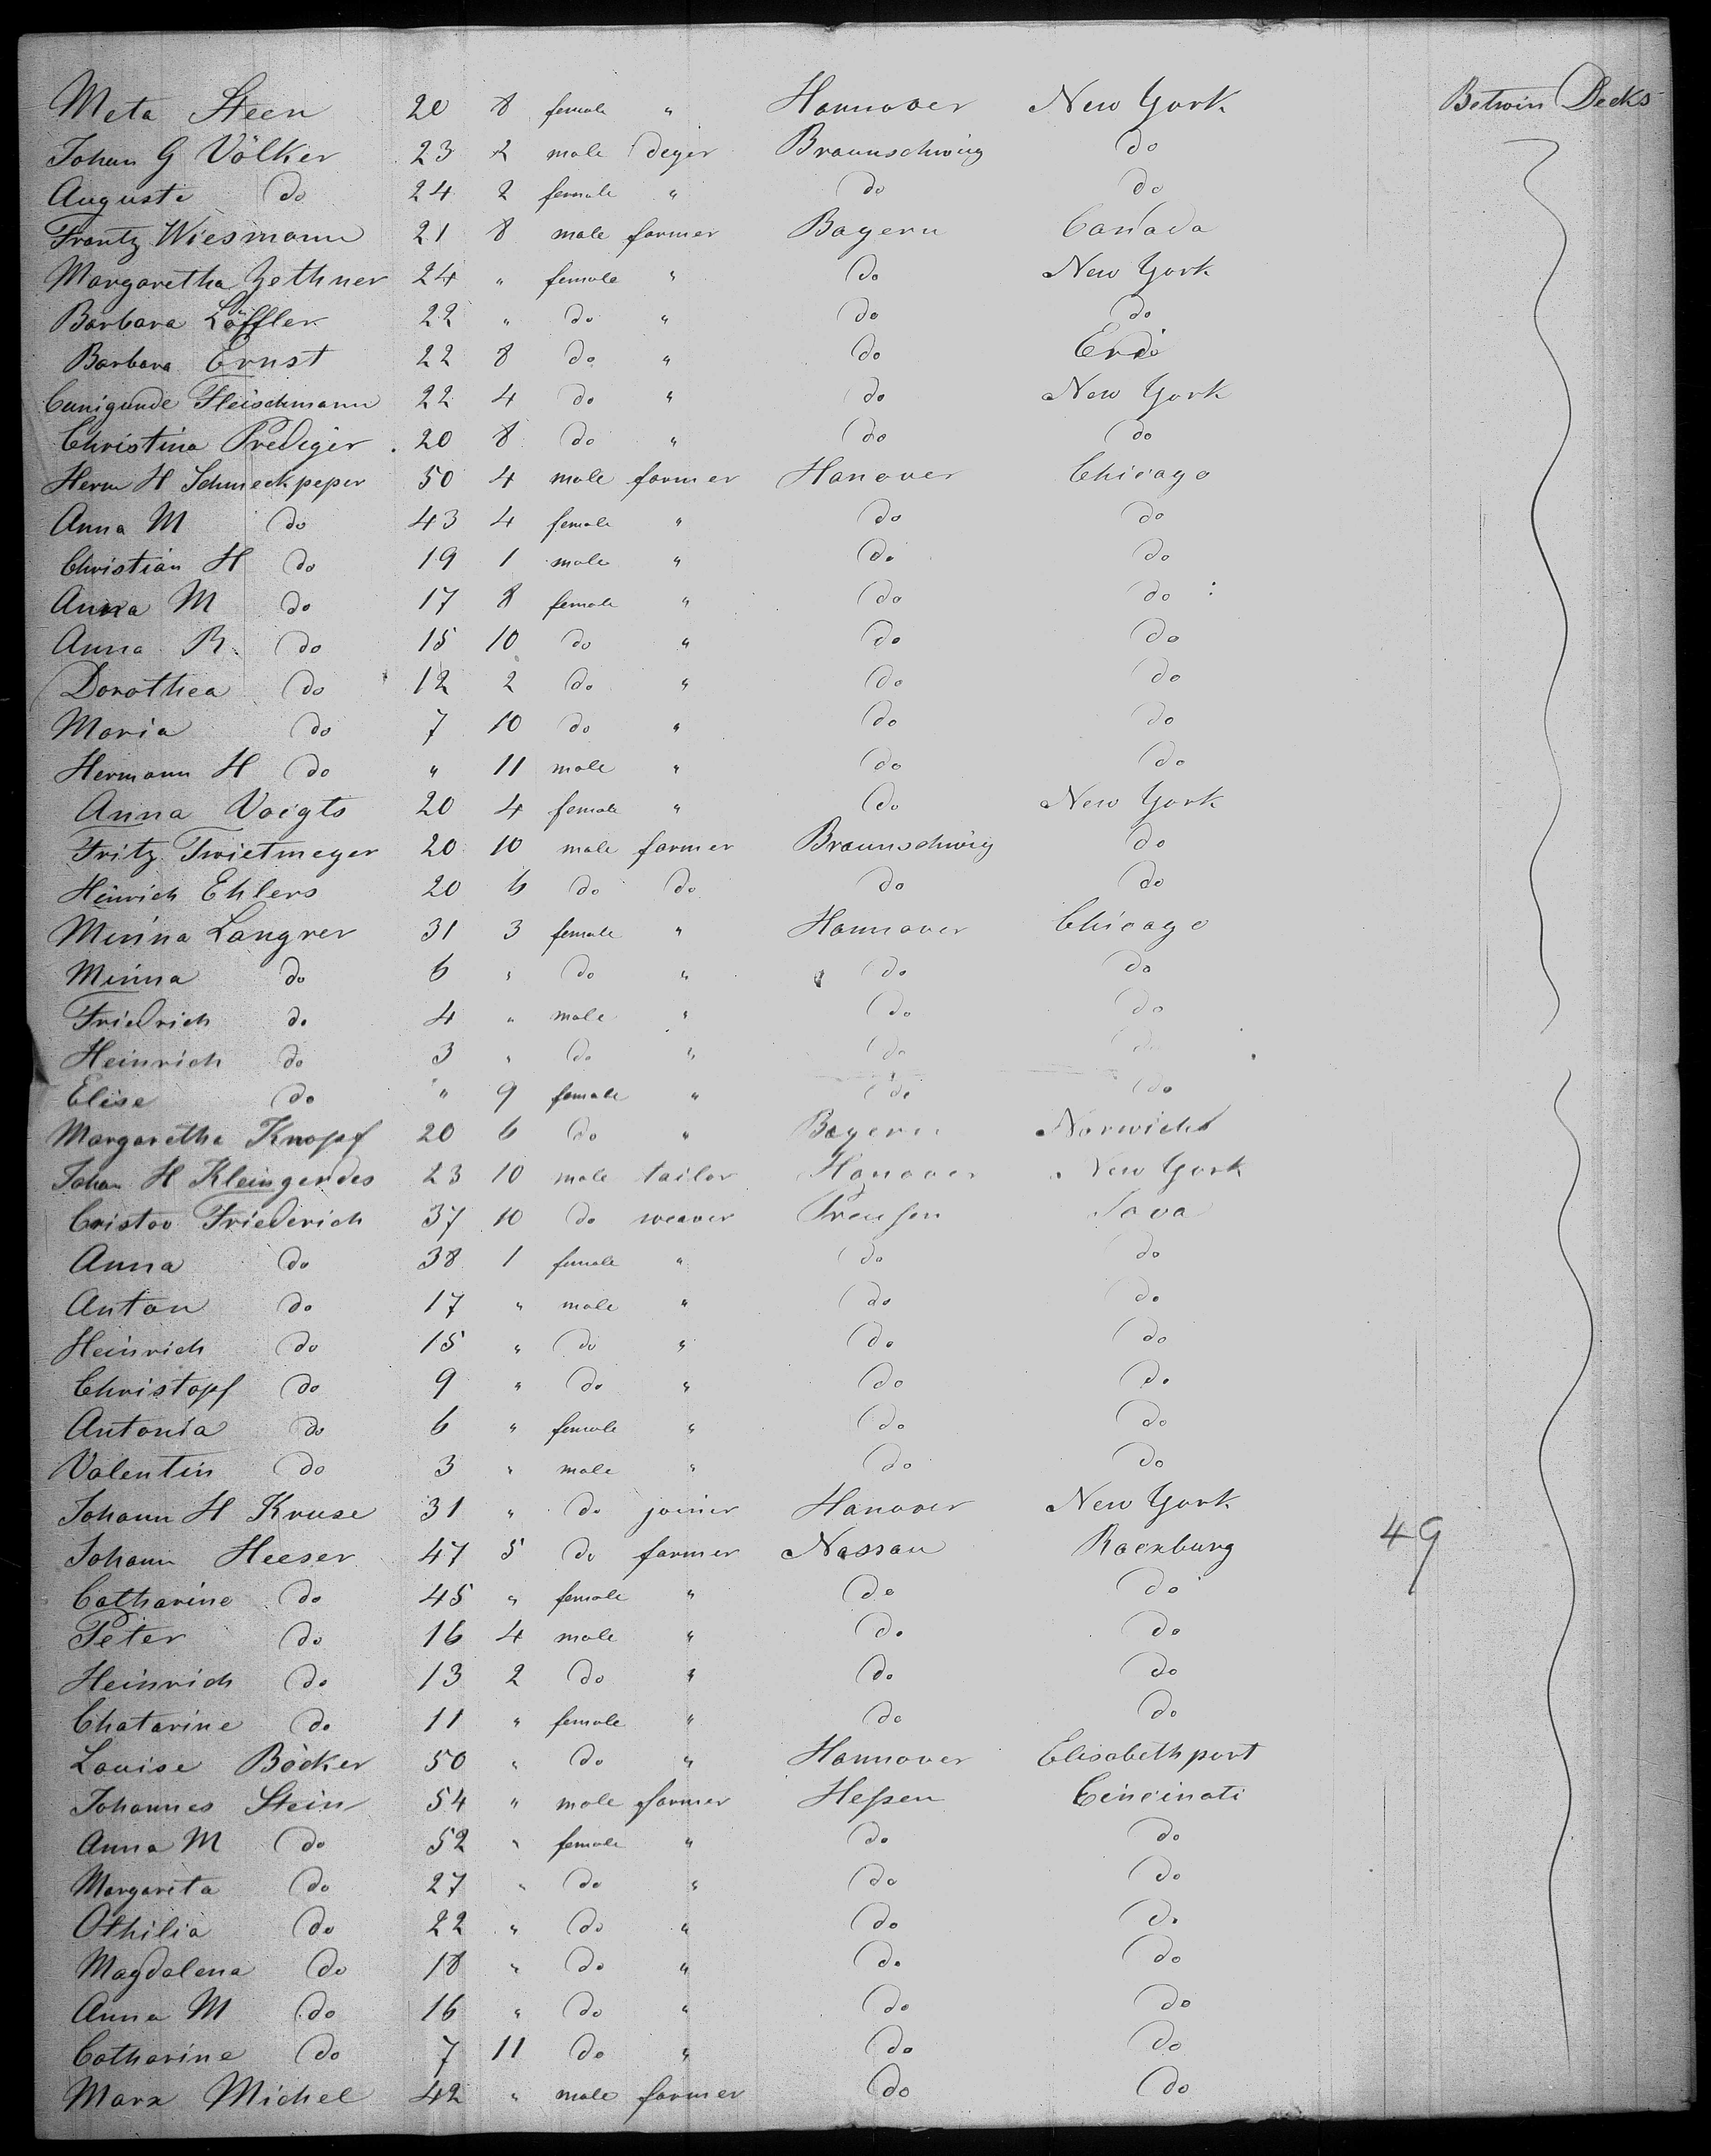 Meta Steen 20 8 female " Hannover New York Betwin Decks
Johan G Völker 23 2 male deyer Braunschwig do
Auguste do 24 2 female " do do
Frantz Wiesmann 21 8 male farmer Bayern Canada
Margaretha Zethner 24 " female " do New York
Barbara Löffler 22 " do " do do
Barbara Ernst 22 8 do " do Erie
Cunigunde Fleischmann 22 4 do " do New York
Christina Prediger 20 8 do " do do
Herm H Schmeckpeper 50 4 male farmer Hanover Chicago
Anna M do 43 4 female " do do
Christian H do 19 1 male " do do
Anna M do 17 8 female " do do
Anna R. do 15 10 do " do do
Dorothea do 12 2 do " do do
Maria do 7 10 do " do do
Hermann H do " 11 male " do do
Anna Voigts 20 4 female " do New York
Fritz Twietmeyer 20 10 male farmer Braunschwig do
Heinrich Ehlers 20 6 do do do do
Minna Langrer 31 3 female " Hannover Chicago
Minna do 6 " do " do do
Friedrich do 4 " male " do do
Heinrich do 3 " do " do do
Elise do " 9 female " do do
Margaretha Knopf 20 6 do " Bayern Norwich
Johan H Kleingerdes 23 10 male tailor Hanover New York
Cristov Friederich 37 10 do weaver Preußen Iova
Anna do 38 1 female " do do
Anton do 17 " male " do do
Heinrich do 15 " do " do do
Christopf do 9 " do " do do
Antonia do 6 " female " do do
Valentin do 3 " male " do do
Johann H Kruse 31 " do joiner Hanover New York
Johann Heeser 47 5 do farmer Nassau Roexburg 49
Catharine do 45 " female " do do
Peter do 16 4 male " do do
Heinrich do 13 2 do " do do
Chatarine do 11 " female " do do
Louise Böcker 50 " do " Hannover Elisabethport
Johannes Stein 54 " male farmer Heßen Cincinati
Anna M do 52 " female " do do
Margareta do 27 " do " do do
Othilia do 22 " do " do do
Magdalena do 18 " do " do do
Anna M do 16 " do " do do
Catharine do 7 11 do " do do
Marx Michel 42 " male farmer do do